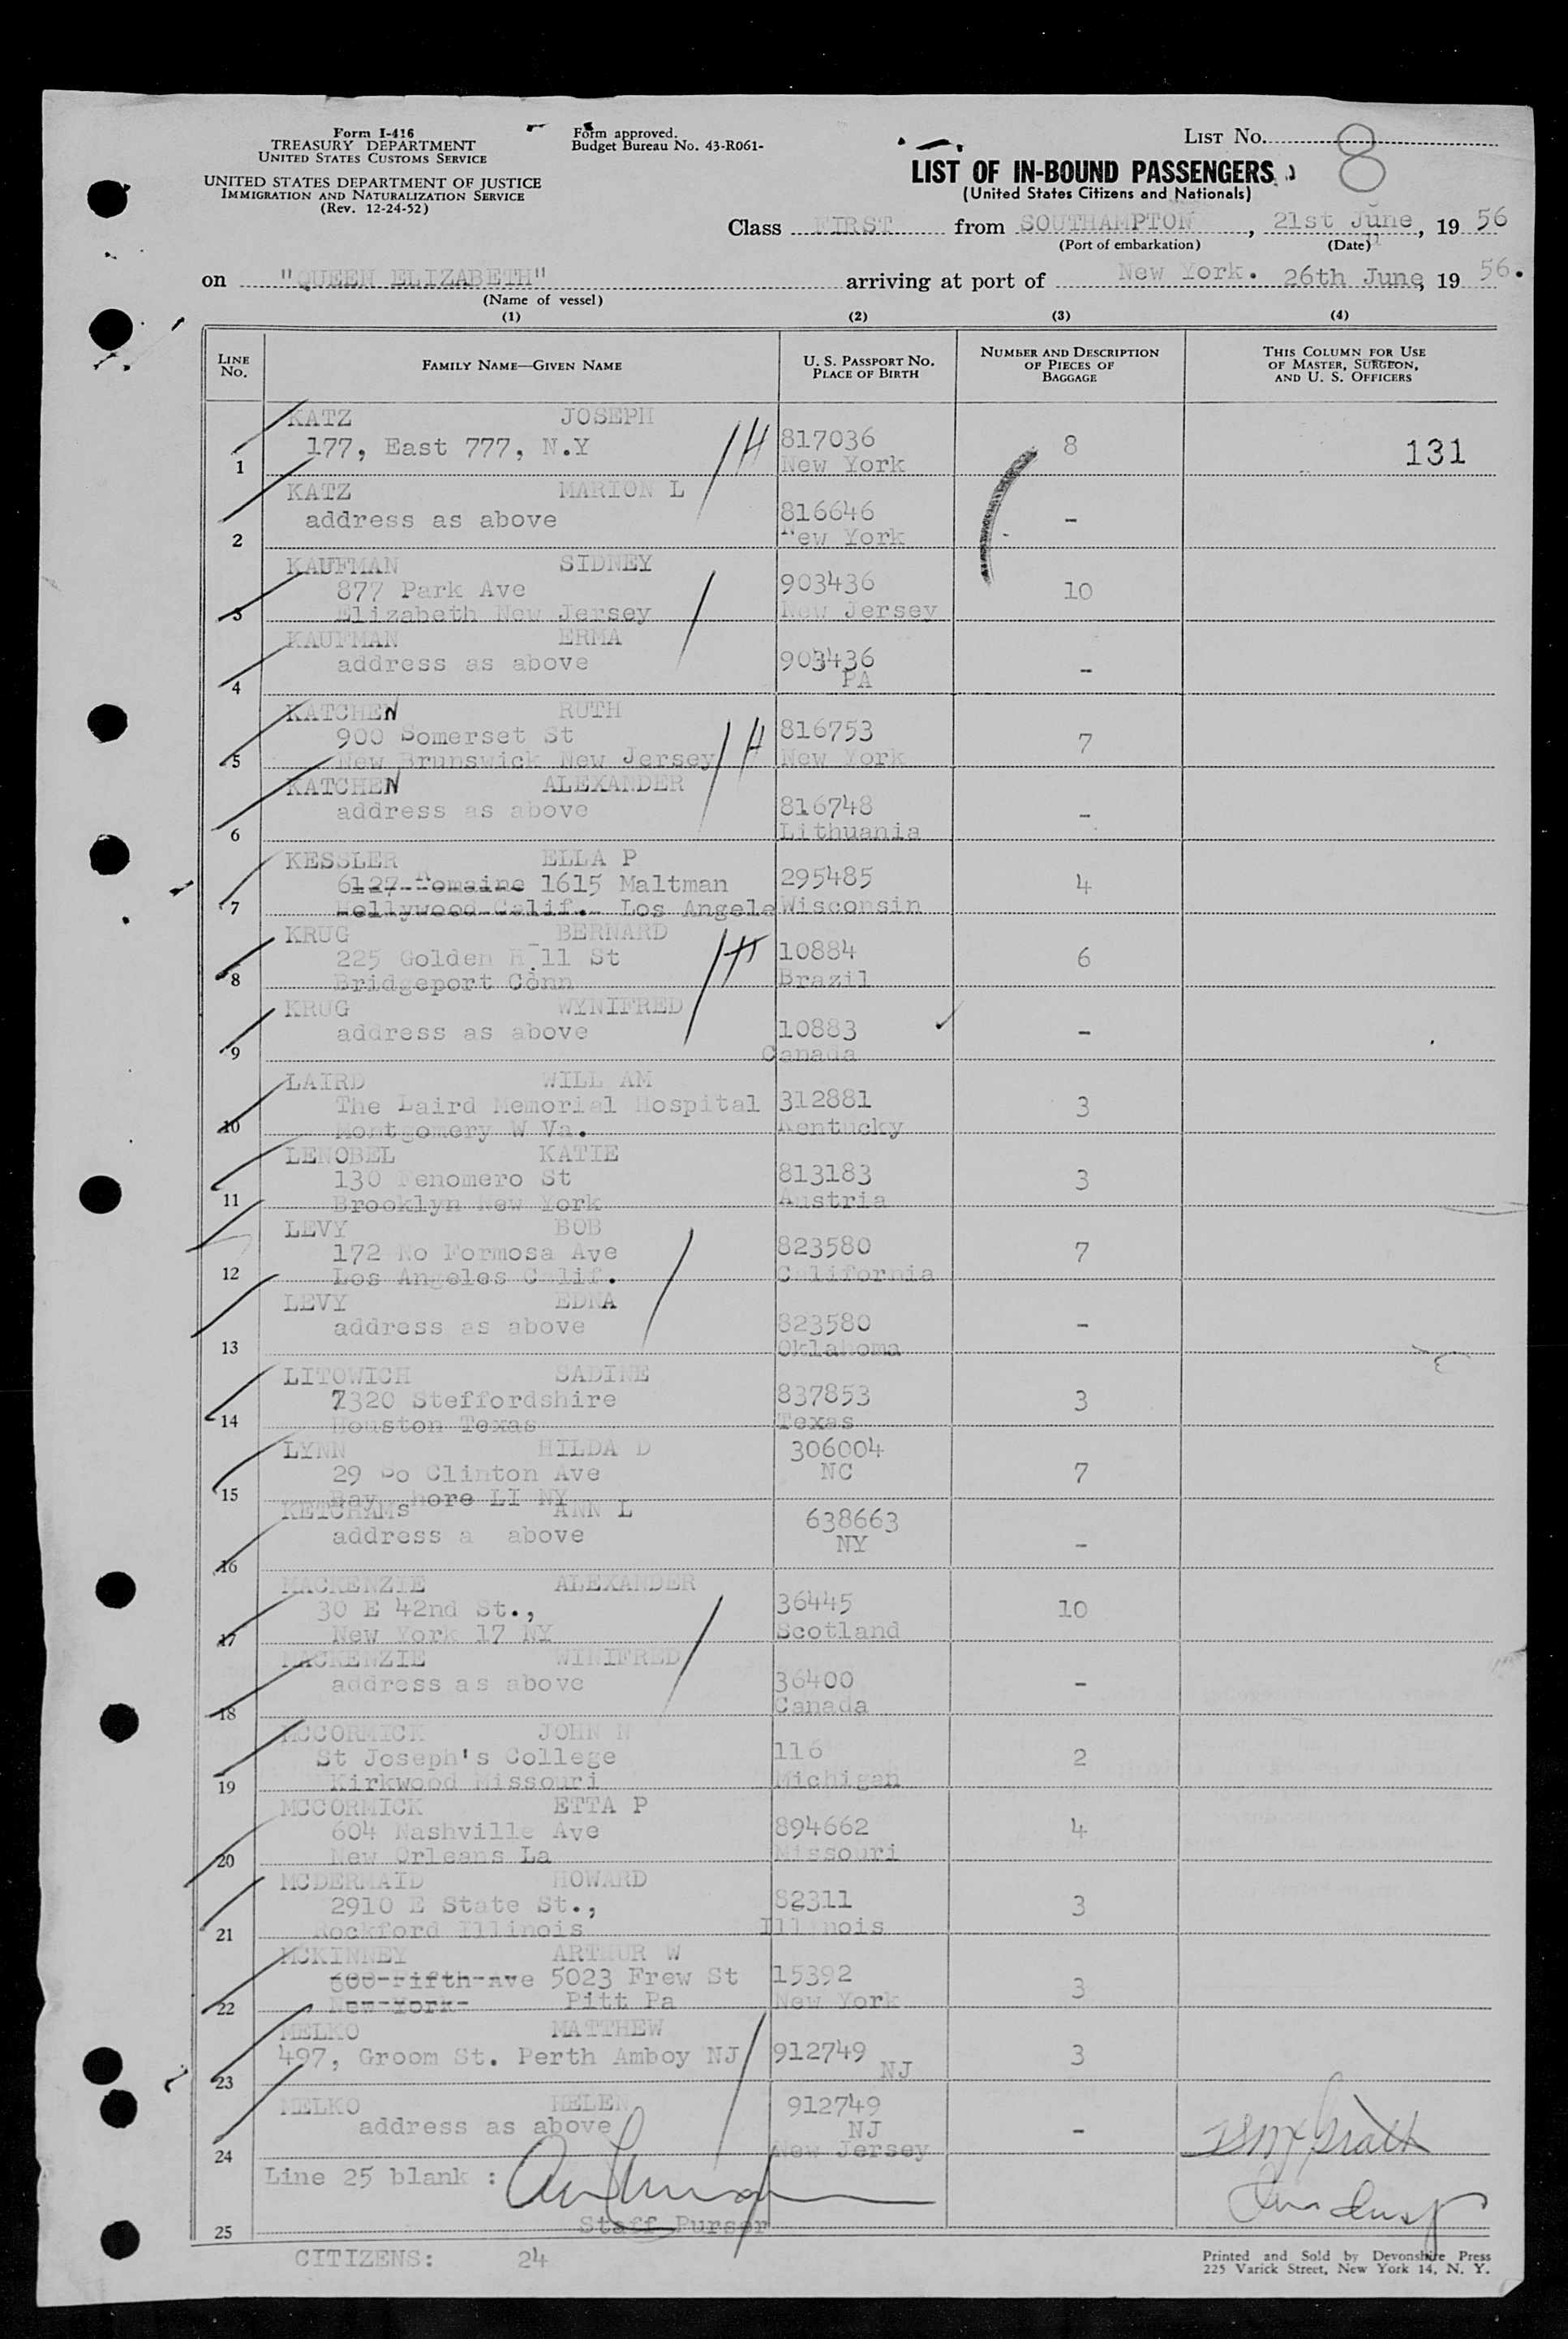 Form I-416
TREASURY DEPARTMENT
UNITED STATES CUSTOMS SERVICE
UNITED STATES DEPARTMENT OF JUSTICE
IMMIGRATION AND NATURALIZATION SERVICE
(Rev. 12-24-52)
Form approved.
Budget Bureau No. 43-R061-
LIST No. 8
LIST OF IN-BOUND PASSENGERS
(United States Citizens and Nationals)
Class FIRST from SOUTHAMPTON, 21st June, 19 56
(Port of embarkation) (Date)
on "QUEEN ELIZABETH" arriving at port of New York. 26th June, 19 56.
(Name of vessel)
(1) (2) (3) (4)
LINE No. FAMILY NAME—GIVEN NAME U. S. PASSPORT NO. PLACE OF BIRTH NUMBER AND DESCRIPTION OF PIECES OF BAGGAGE THIS COLUMN FOR USE OF MASTER, SURGEON, AND U. S. OFFICERS
KATZ JOSEPH
177, East 777, N.Y 817036 8 131
1 New York
KATZ MARION L
address as above 816646 -
2 New York
KAUFMAN SIDNEY
877 Park Ave 903436 10
3 Elizabeth New Jersey New Jersey
KAUFMAN ERMA
address as above 903436 -
4 PA
KATCHEN RUTH
900 Somerset St 816753 7
5 New Brunswick New Jersey New York
KATCHEN ALEXANDER
address as above 816748 -
6 Lithuania
KESSLER ELLA P
6127 Romaine 1615 Maltman 295485 4
7 Hollywood Calif. Los Angele Wisconsin
KRUG BERNARD
225 Golden H ll St 10884 6
8 Bridgeport Conn Brazil
KRUG WYNIFRED
address as above 10883 -
9 Canada
LAIRD WILL AM
The Laird Memorial Hospital 312881 3
10 Montgomery W Va. Kentucky
LENOBEL KATIE
130 Fenomero St 813183 3
11 Brooklyn New York Austria
LEVY BOB
172 No Formosa Ave 823580 7
12 Los Angeles Calif. California
LEVY EDNA
address as above 823580 -
13 Oklahoma
LITOWICH SADINE
7320 Steffordshire 837853 3
14 Houston Texas Texas
LYNN HILDA D 306004
29 So Clinton Ave NC 7
15 Bay hore LI NY
KETCHAMS ANN L 638663
address a above NY -
16
MACKENZIE ALEXANDER
30 E 42nd St., 36445 10
17 New York 17 NY Scotland
MACKENZIE WINIFRED
address as above 36400 -
18 Canada
MCCORMICK JOHN N
St Joseph's College 116 2
19 Kirkwood Missouri Michigan
MCCORMICK ETTA P
604 Nashville Ave 894662 4
20 New Orleans La Missouri
MCDERMAID HOWARD
2910 E State St., 82311 3
21 Rockford Illinois Illinois
MCKINNEY ARTHUR W
600 Fifth Ave 5023 Frew St 15392 3
22 New York Pitt Pa New York
MELKO MATTHEW
497, Groom St. Perth Amboy NJ 912749 3
23 NJ
MELKO HELEN 912749
address as above NJ -
24 New Jersey
Line 25 blank :
25 Staff Purser
CITIZENS: 24
Printed and Sold by Devonshire Press
225 Varick Street, New York 14, N. Y.